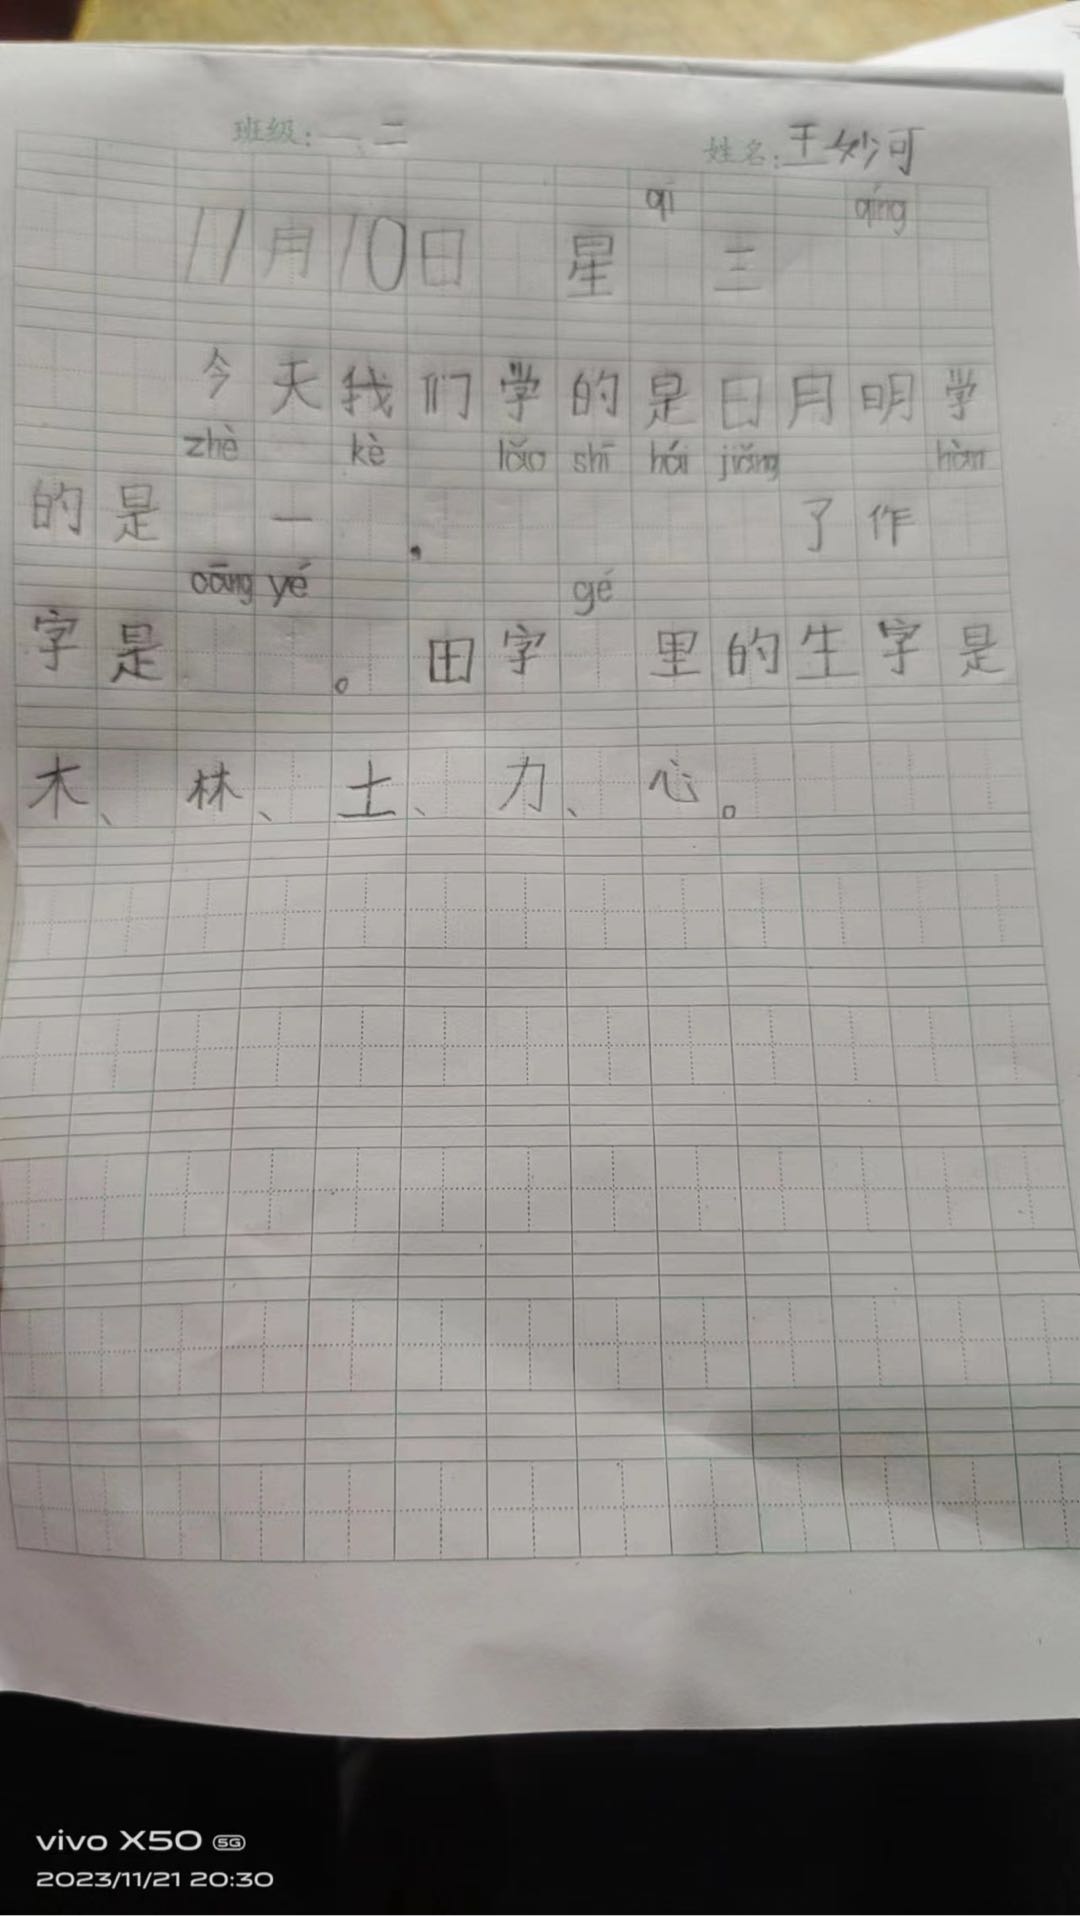 班级: 一、二 姓名: 王妙河
11月10日 星qī三 qíng
今天我们学的是日月明学
的是zhè一kè. lǎo shī hái jiǎng了作hàn
字是cāng yé。田字gé里的生字是
木、林、土、力、心。
vivo X50 5G
2023/11/21 20:30